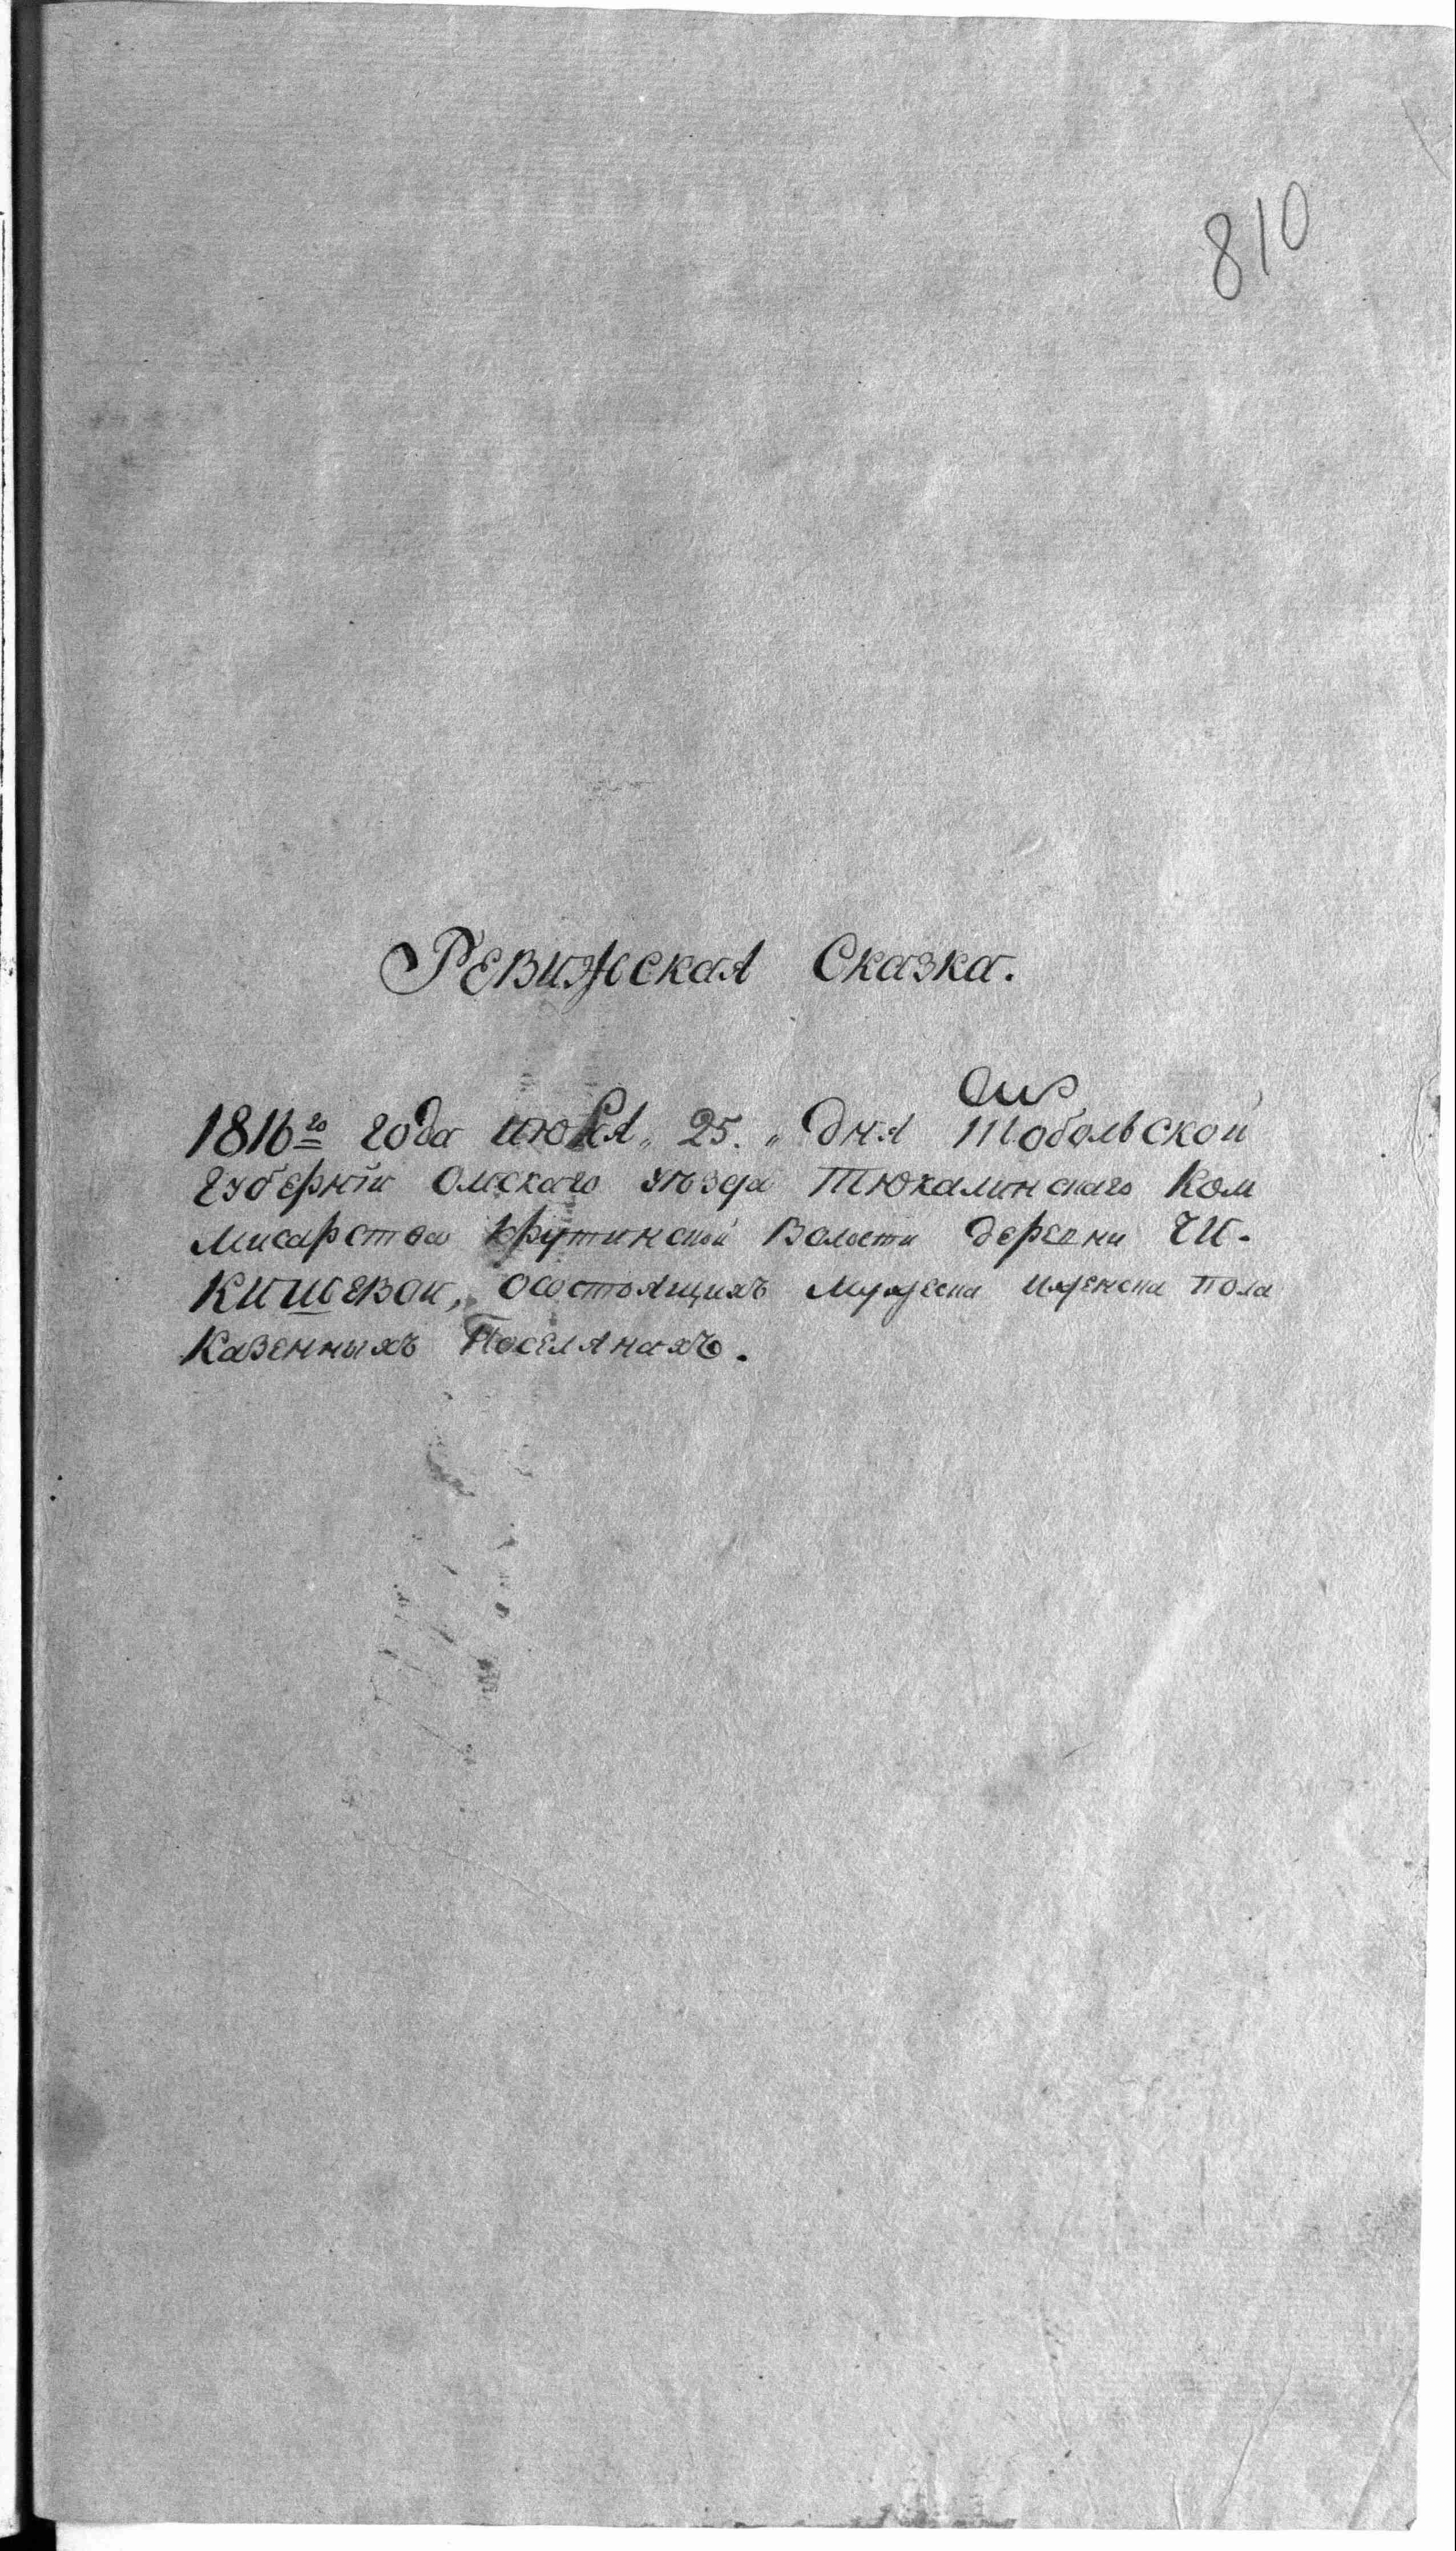 810
Ревижская Сказка.
1816го года июля „ 25. „ дня Тобольской
губерніи Омскаго уѣзда Тюкалинскаго Ком
мисарства Крутинской Волости деревни Чи-
кишевой, осостоящихъ Мужеска иженска пола
Казенныхъ Поселянахъ.